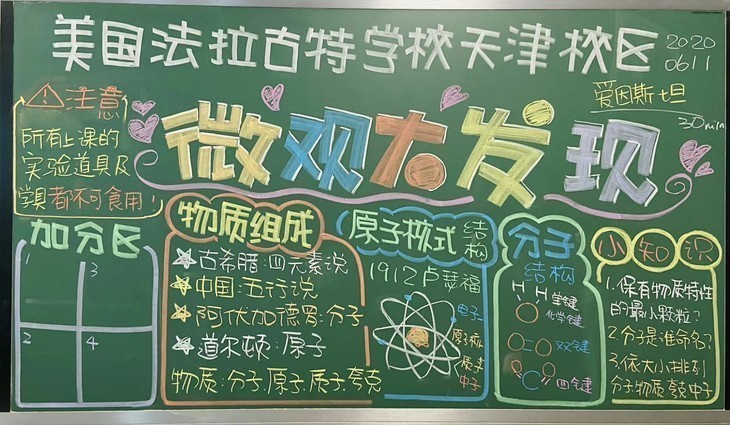 美国法拉古特学校天津校区
2020
0611
爱因斯坦
30min
⚠注意
所有上课的
实验道具及
学具都不可食用!
微观大发现
加分区
1
3
2
4
物质组成
古希腊:四元素说
中国:五行说
阿伏加德罗:分子
道尔顿:原子
物质:分子.原子.质子.夸克
原子核式结构
1912卢瑟福
电子
原子核
质子
中子
分子
结构
H H 学键
化学键
双键
四键
小知识
1.保有物质特性
的最小颗粒?
2.分子是谁命名?
3.依大小排列
分子物质夸克中子